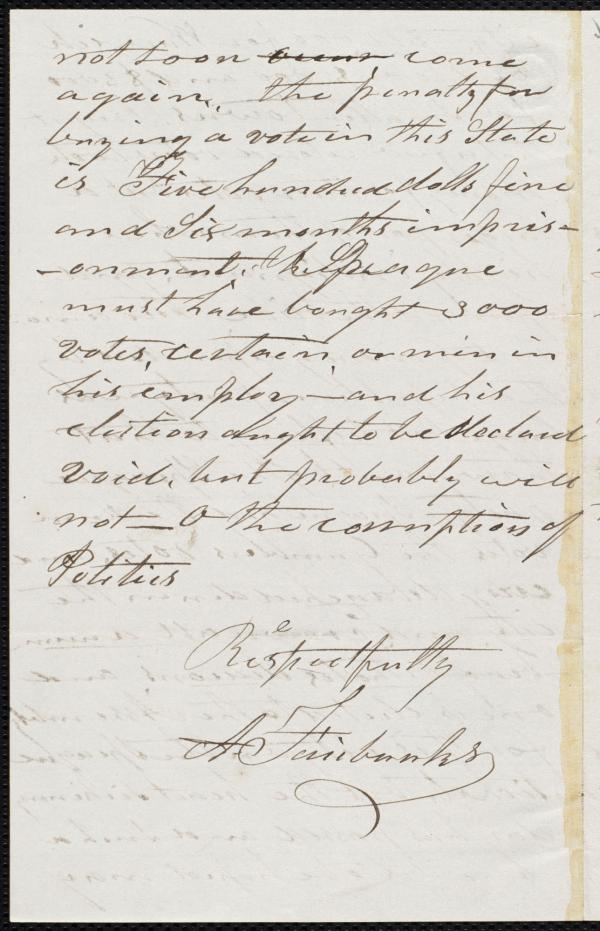 not soon <s>occur</s> come
again, the penalty for
buying a vote in this State
is Five hundred dolls fine
and Six months impris-
-onment. Mr Sprague
must have bought 3000
votes, certain, or men in
his employ - and his
election aught to be declared
void, but probably will
not - O the corruption of
Politics
Respectfully
A. Fairbanks